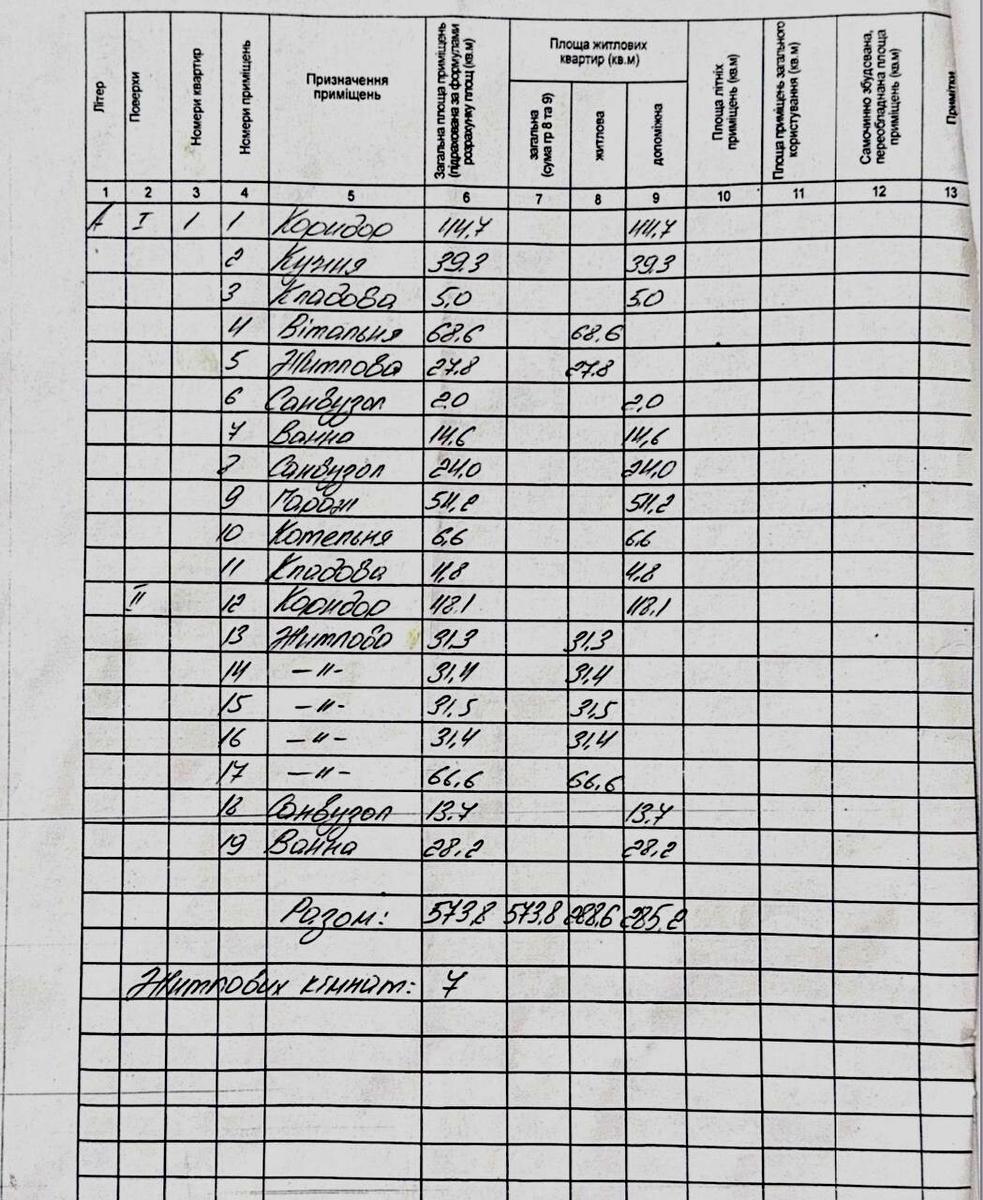 Літер
Поверхи
Номери квартир
Номери приміщень
Призначення
приміщень
Загальна площа приміщень
(підрахована за формулами
розрахунку площ) (кв.м)
Площа житлових
квартир (кв.м)
загальна
(сума гр 8 та 9)
житлова
допоміжна
Площа літніх
приміщень (кв.м)
Площа приміщень загального
користування (кв.м)
Самочинно збудована,
переобладнана площа
приміщень (кв.м)
Примітки
1 2 3 4 5 6 7 8 9 10 11 12 13
А I 1 1 Коридор 44,7 44,7
2 Кухня 39.3 39.3
3 Кладова 5.0 5.0
4 Вітальня 68.6 68.6
5 Житлова 27.8 27.8
6 Санвузол 2.0 2,0
7 Ванна 14,6 14,6
8 Санвузол 24,0 24,0
9 Гараж 54,2 54,2
10 Котельня 6.6 6.6
11 Кладова 4,8 4,8
II 12 Коридор 48.1 48.1
13 Житлова 31.3 31.3
14 –"– 31,4 31,4
15 –"– 31,5 31,5
16 –"– 31,4 31,4
17 –"– 66,6 66,6
18 Санвузол 13.7 13,7
19 Ванна 28.2 28,2
Разом: 573,8 573,8 288,6 285,2
Житлових кімнат: 7